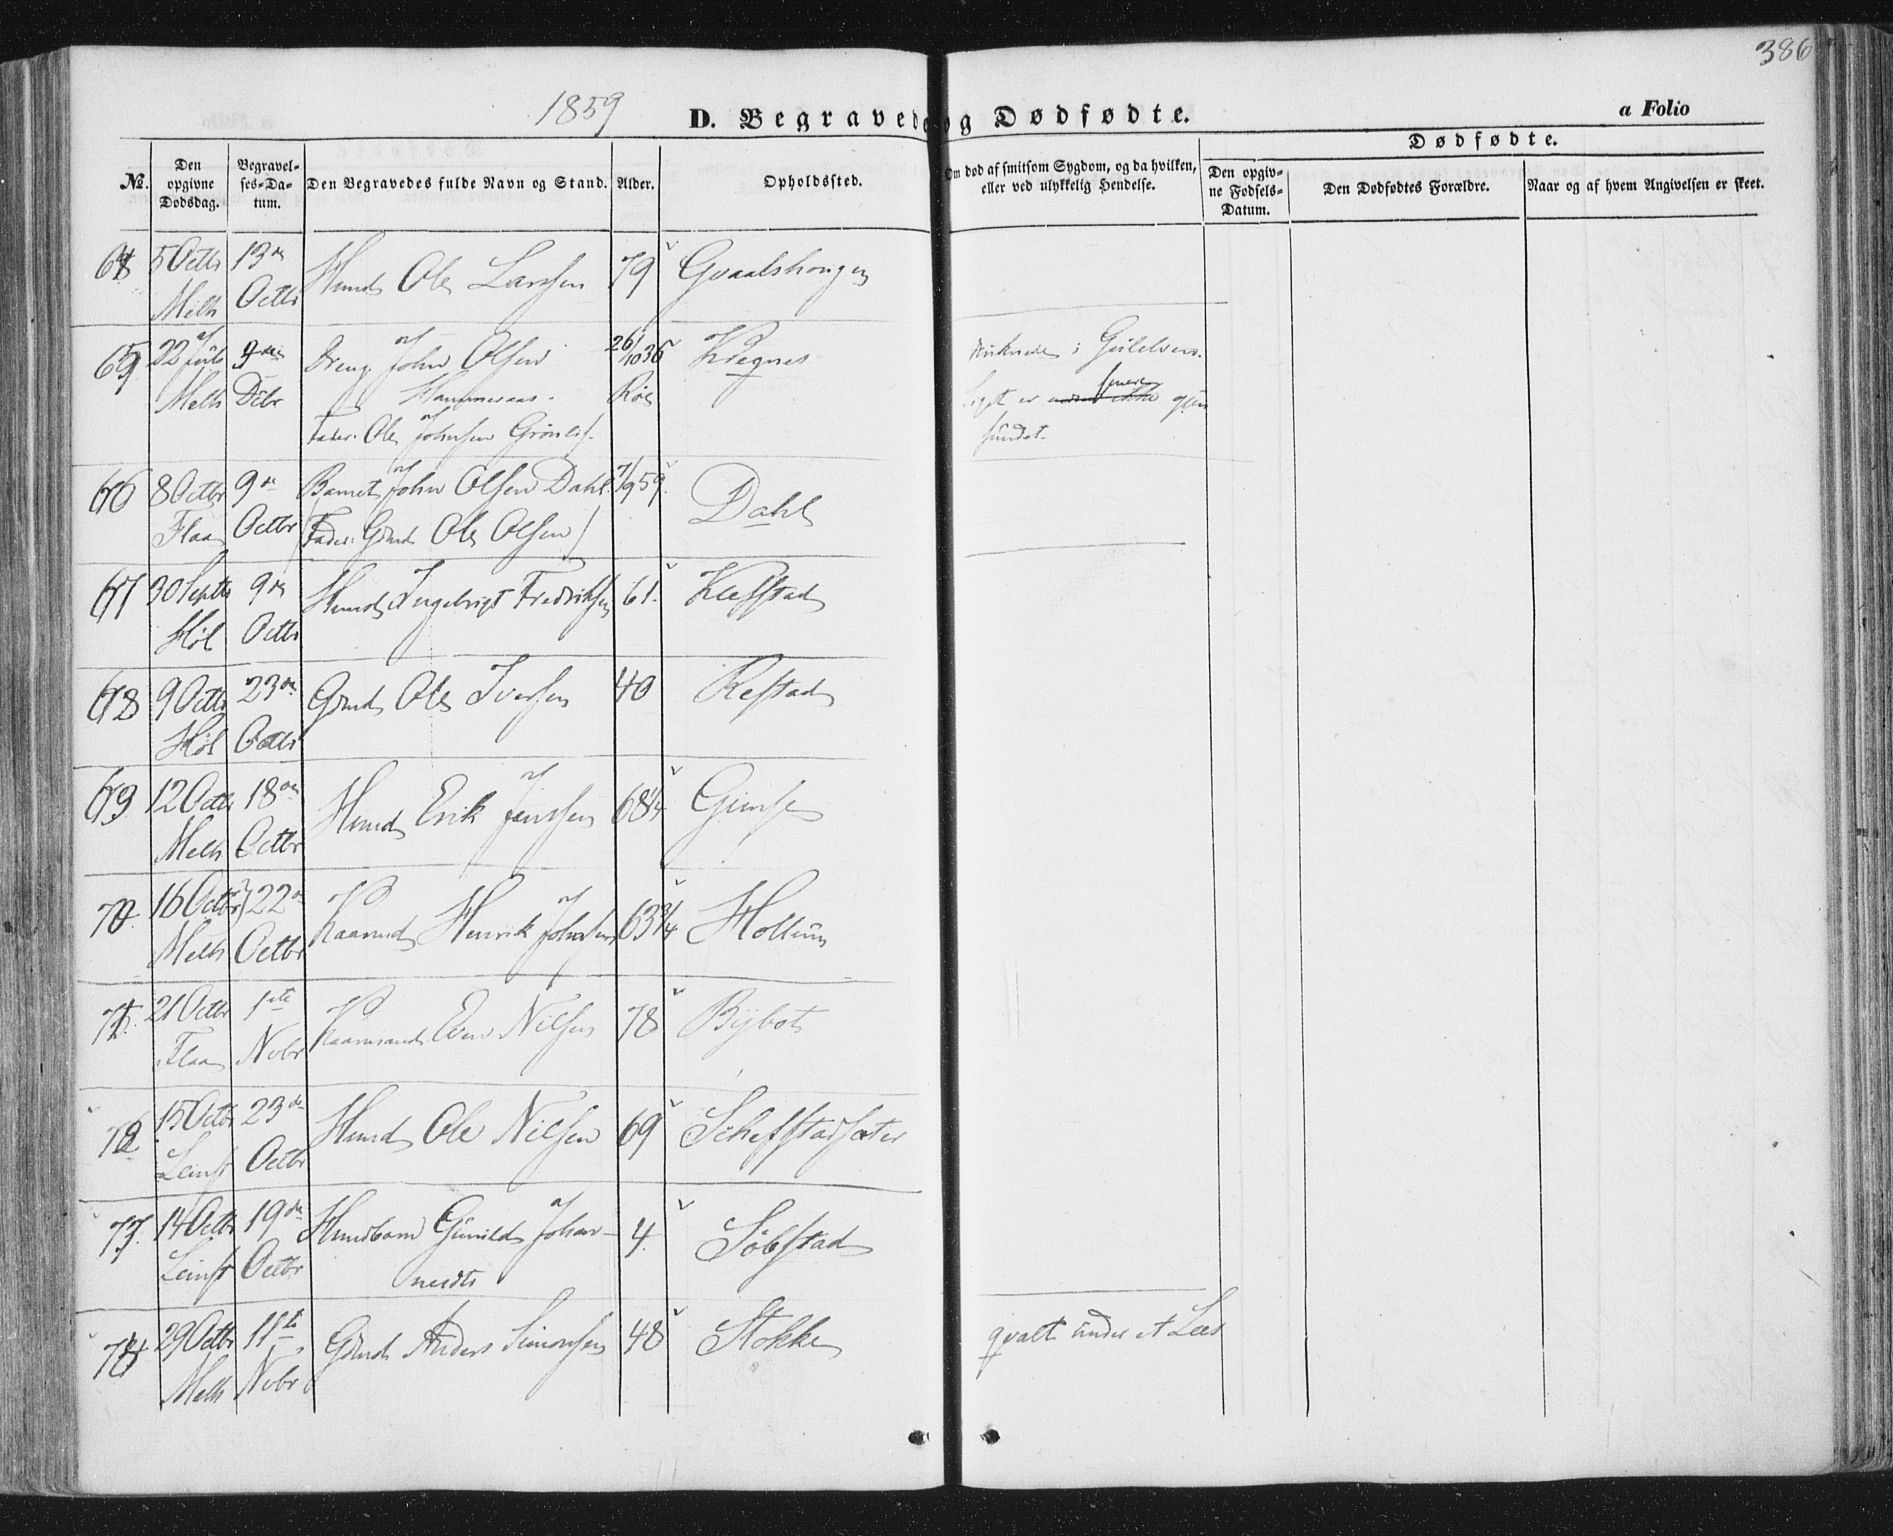 386
1859
D. Begravede og Dødfødte.
a Folio
Dødfødte.
No.
Den opgivne Dødsdag.
Begravelses-Datum.
Den Begravedes fulde Navn og Stand.
Alder.
Opholdssted.
Om død af smitsom Sygdom, og da hvilken, eller ved ulykkelig Hendelse.
Den opgivne Fødsels-Datum.
Den Dødfødtes Forældre.
Naar og af hvem Angivelsen er skeet.
64 5 Octbr 13de Huusmd Ole Larssen 79
Melh Octbr
65 22 Juli 9de Dreng John Olsen 26/10 36 Kregnes
Melh Octbr Hammeraas. Røe
Fader: Ole Johnsen Grønli
druknede i Gulelven.
Liget er senere gjen
fundet.
66 8 Octbr 9de Barnet John Olsen Dahl 7/9 59. Dahl
Flaa Octbr (Fader: Gmd Ole Olsen)
67 30 Septbr 9de Huusmd Ingebrigt Fredriksen 61. Kleffstad
Høl Octbr
68 9 Octbr 23de Gmd Ole Iversen 40 Refstad
Høl Octbr
69 12 Octbr 18de Huusmd Erik Jenssen 68 1/4 Gimse
Melh Octbr
70 16 Octbr 22de Kaarmd Henrik Johnsen 63 3/4 Hollum
Melh Octbr
71 21 Octbr 1ste Kaarmand Even Nilsen 78
Flaa Novbr
72 15 Octbr 23de Huusmd Ole Nilsen 69
Leinst Octbr
73. 14 Octbr 19de Huusbarn Gunild Johan- 4. Søbstad
Leinst Octbr nesdtr
74 29 Octbr 11te Gmd Anders Simonsen 48 Stokke
Melh Novbr
qvalt under et Læs